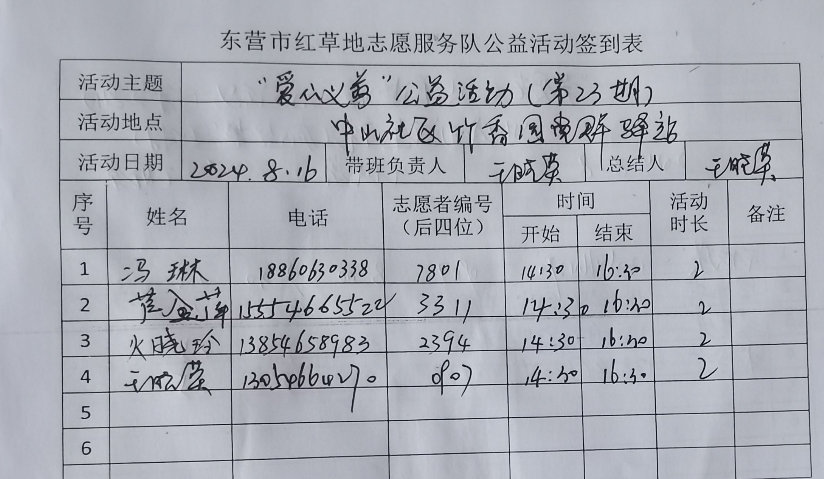 东营市红草地志愿服务队公益活动签到表
活动主题 "爱心义剪"公益活动(第23期)
活动地点 中山社区竹香园 驿站
活动日期 2024.8.16 带班负责人 王晓英 总结人 王晓英
序号 姓名 电话 志愿者编号(后四位) 时间 活动时长 备注
开始 结束
1 冯琳 18860630338 7801 14:30 16:30 2
2 15554665522 3311 14:30 16:30 2
3 火晓玲 13854658983 2394 14:30 16:30 2
4 王晓英 0907 14:30 16:30 2
5
6